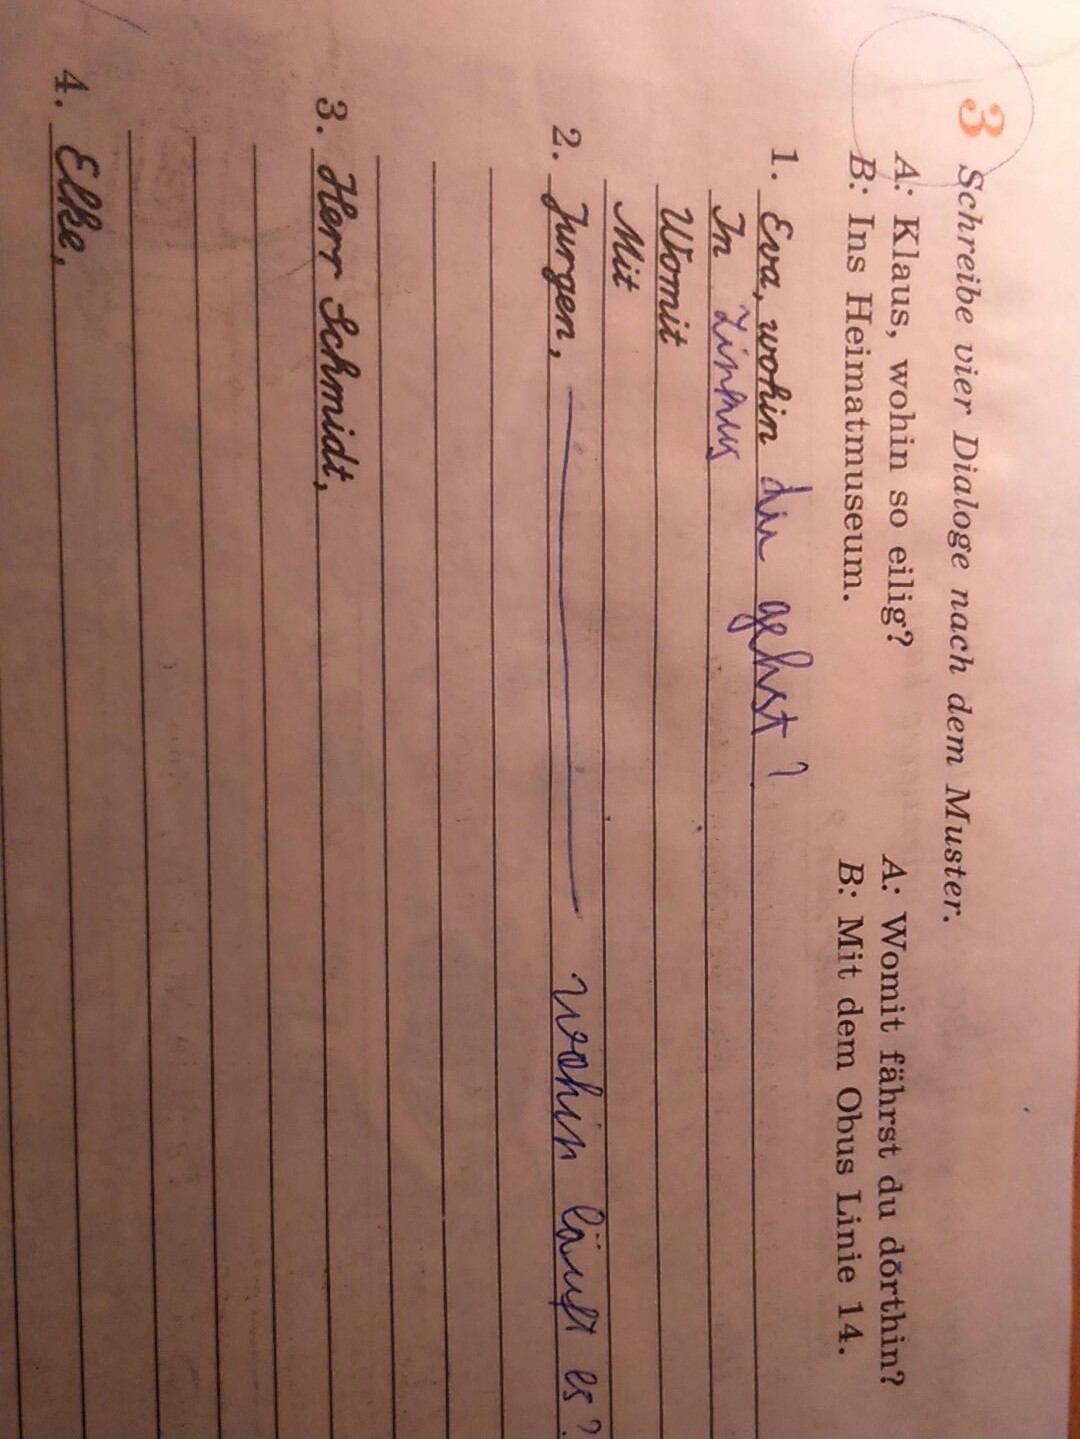 3 Schreibe vier Dialoge nach dem Muster.
A: Klaus, wohin so eilig? A: Womit fährst du dorthin?
B: Ins Heimatmuseum. B: Mit dem Obus Linie 14.
1. Eva, wohin du gehst?
In
Womit
Mit
2. Jurgen, wohin läuft es?
3. Herr Schmidt,
4. Elke,